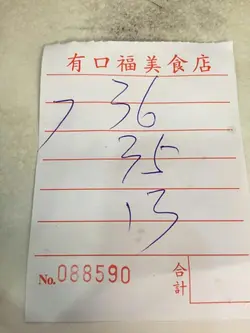 有口福美食店
36
7
35
13
No. 088590
合計